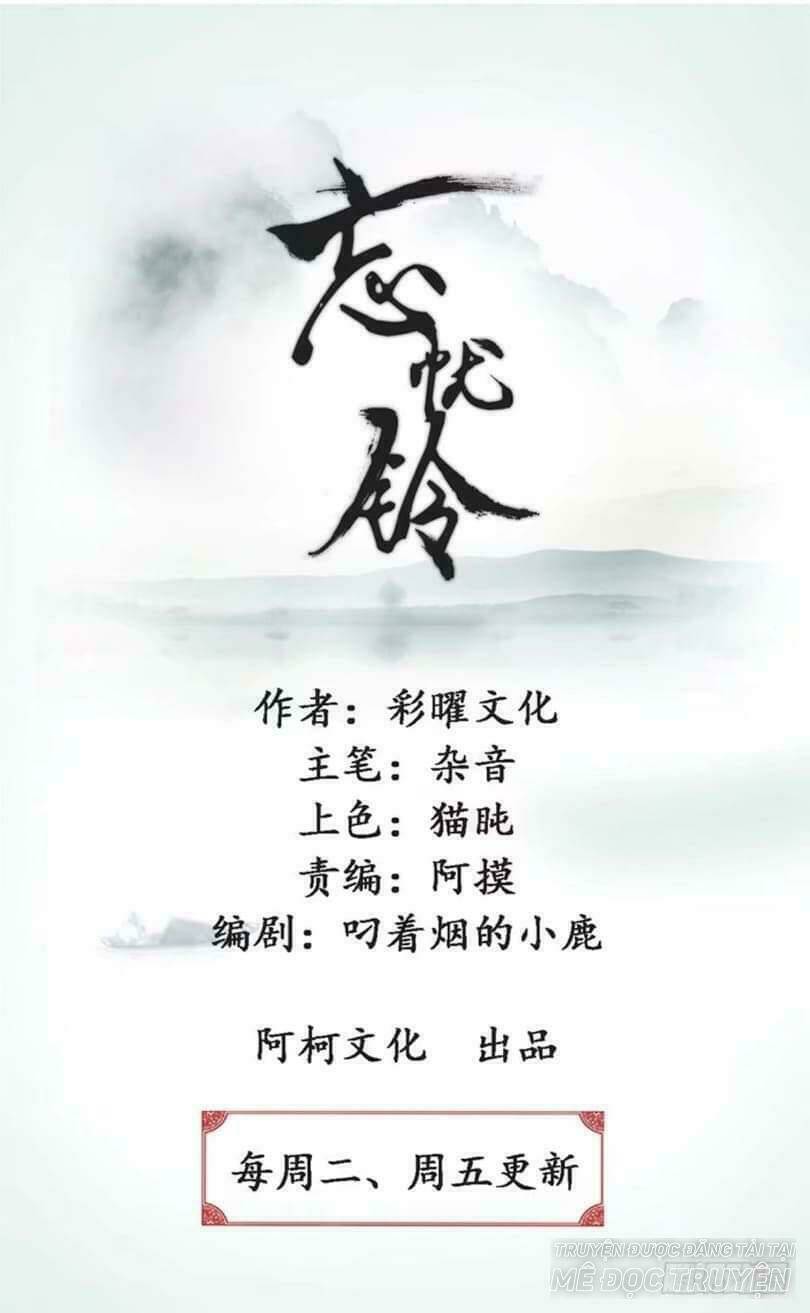 忘忧铃
作者：彩曜文化
主笔：杂音
上色：猫盹
责编：阿摸
编剧：叼着烟的小鹿
阿柯文化 出品
每周二、周五更新
TRUYỆN ĐƯỢC ĐĂNG TẢI TẠI
MÊ ĐỌC TRUYỆN